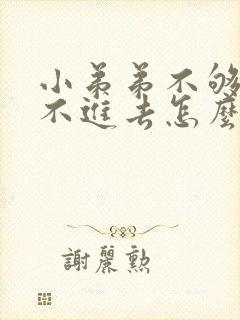 小弟弟不够
不进去怎麼
謝麗勲